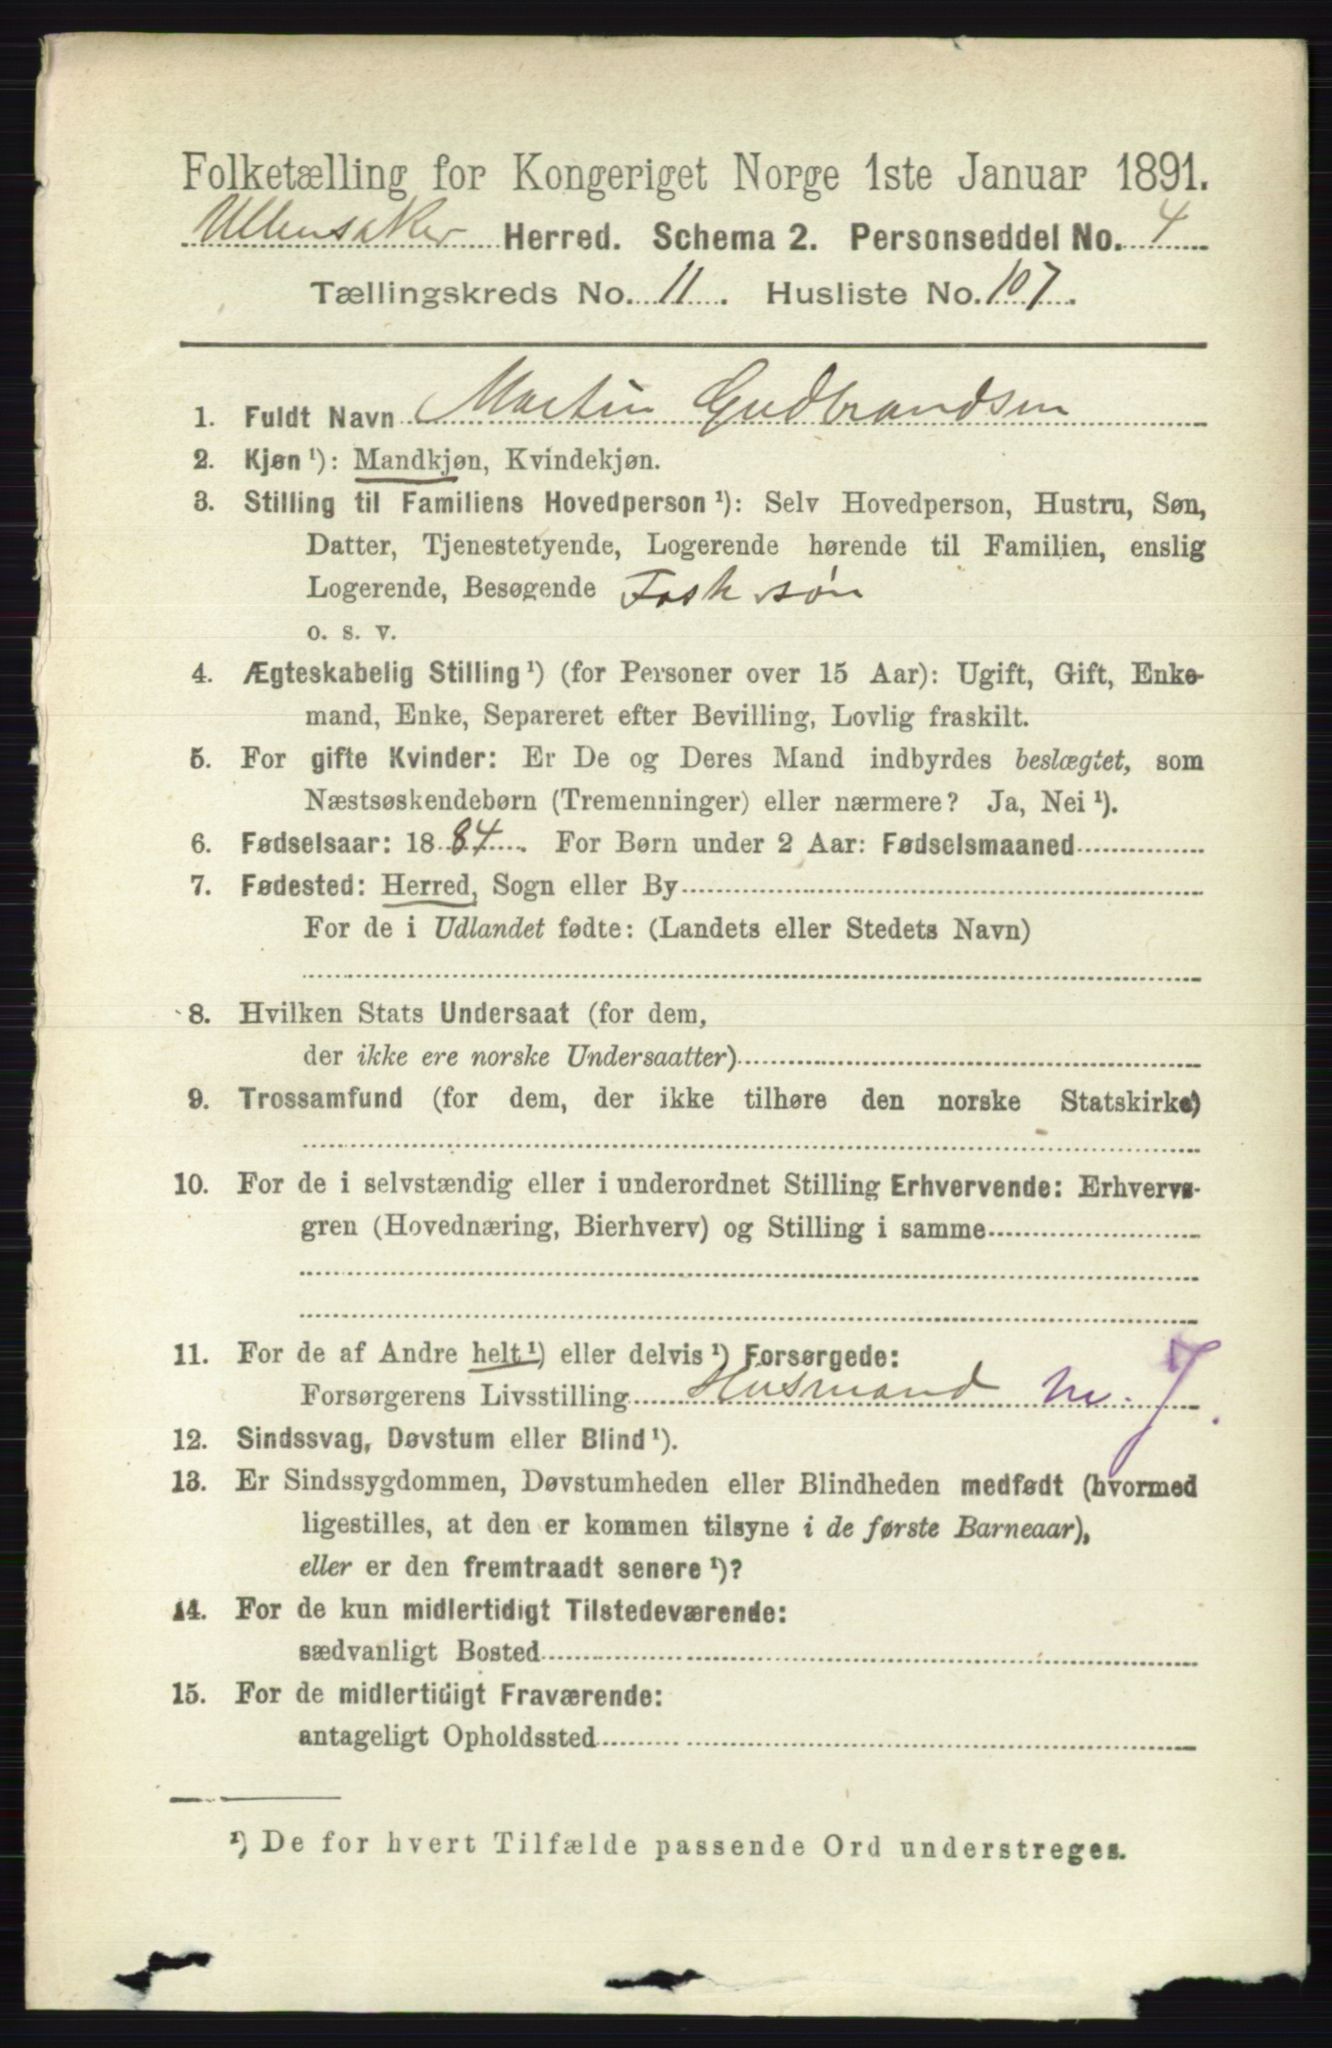 Folketælling for Kongeriget Norge 1ste Januar 1891.
Ullensaker Herred. Schema 2. Personseddel No. 4
Tællingskreds No. 11. Husliste No. 107.
1. Fuldt Navn Martin Gudbrandsen
2. Kjøn ¹): Mandkjøn, Kvindekjøn.
3. Stilling til Familiens Hovedperson ¹): Selv Hovedperson, Hustru, Søn,
Datter, Tjenestetyende, Logerende hørende til Familien, enslig
Logerende, Besøgende Fostersøn
o. s. v.
4. Ægteskabelig Stilling ¹) (for Personer over 15 Aar): Ugift, Gift, Enke-
mand, Enke, Separeret efter Bevilling, Lovlig fraskilt.
5. For gifte Kvinder: Er De og Deres Mand indbyrdes beslægtet, som
Næstsøskendebørn (Tremenninger) eller nærmere? Ja, Nei ¹).
6. Fødselsaar: 1884. For Børn under 2 Aar: Fødselsmaaned
7. Fødested: Herred, Sogn eller By
For de i Udlandet fødte: (Landets eller Stedets Navn)
8. Hvilken Stats Undersaat (for dem,
der ikke ere norske Undersaatter)
9. Trossamfund (for dem, der ikke tilhøre den norske Statskirke)
10. For de i selvstændig eller i underordnet Stilling Erhvervende: Erhvervs-
gren (Hovednæring, Bierhverv) og Stilling i samme
11. For de af Andre helt ¹) eller delvis ¹) Forsørgede:
Forsørgerens Livsstilling Husmand m. J.
12. Sindssvag, Døvstum eller Blind ¹).
13. Er Sindssygdommen, Døvstumheden eller Blindheden medfødt (hvormed
ligestilles, at den er kommen tilsyne i de første Barneaar),
eller er den fremtraadt senere ¹)?
14. For de kun midlertidigt Tilstedeværende:
sædvanligt Bosted
15. For de midlertidigt Fraværende:
antageligt Opholdssted
¹) De for hvert Tilfælde passende Ord understreges.